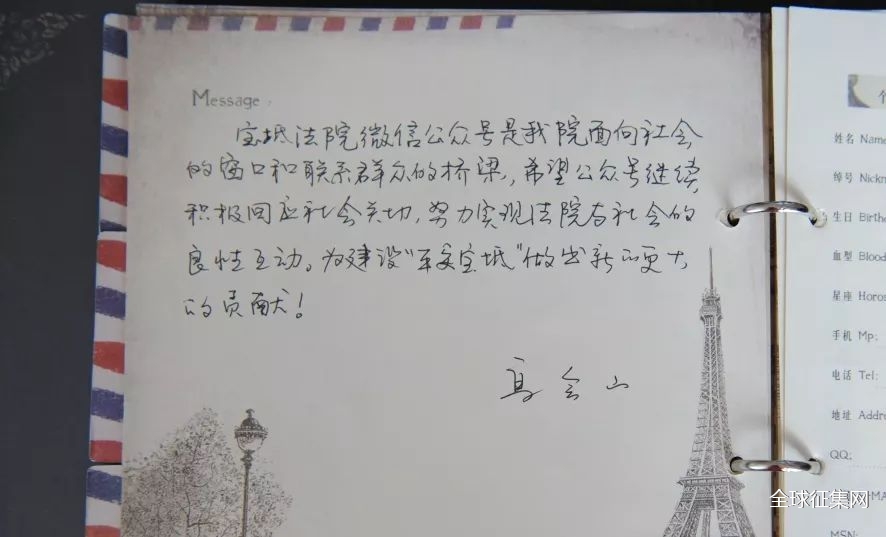 Message:
宝坻法院微信公众号是我院面向社会
的窗口和联系群众的桥梁,希望公众号继续
积极回应社会关切,努力实现法院与社会的
良性互动。为建设"平安宝坻"做出新的更大
的贡献!
会山
姓名 Name
绰号 Nickn
生日 Birthd
血型 Blood
星座 Horos
手机 Mp:
电话 Tel:
地址 Addre
QQ:
-MA
MSN:
全球征集网